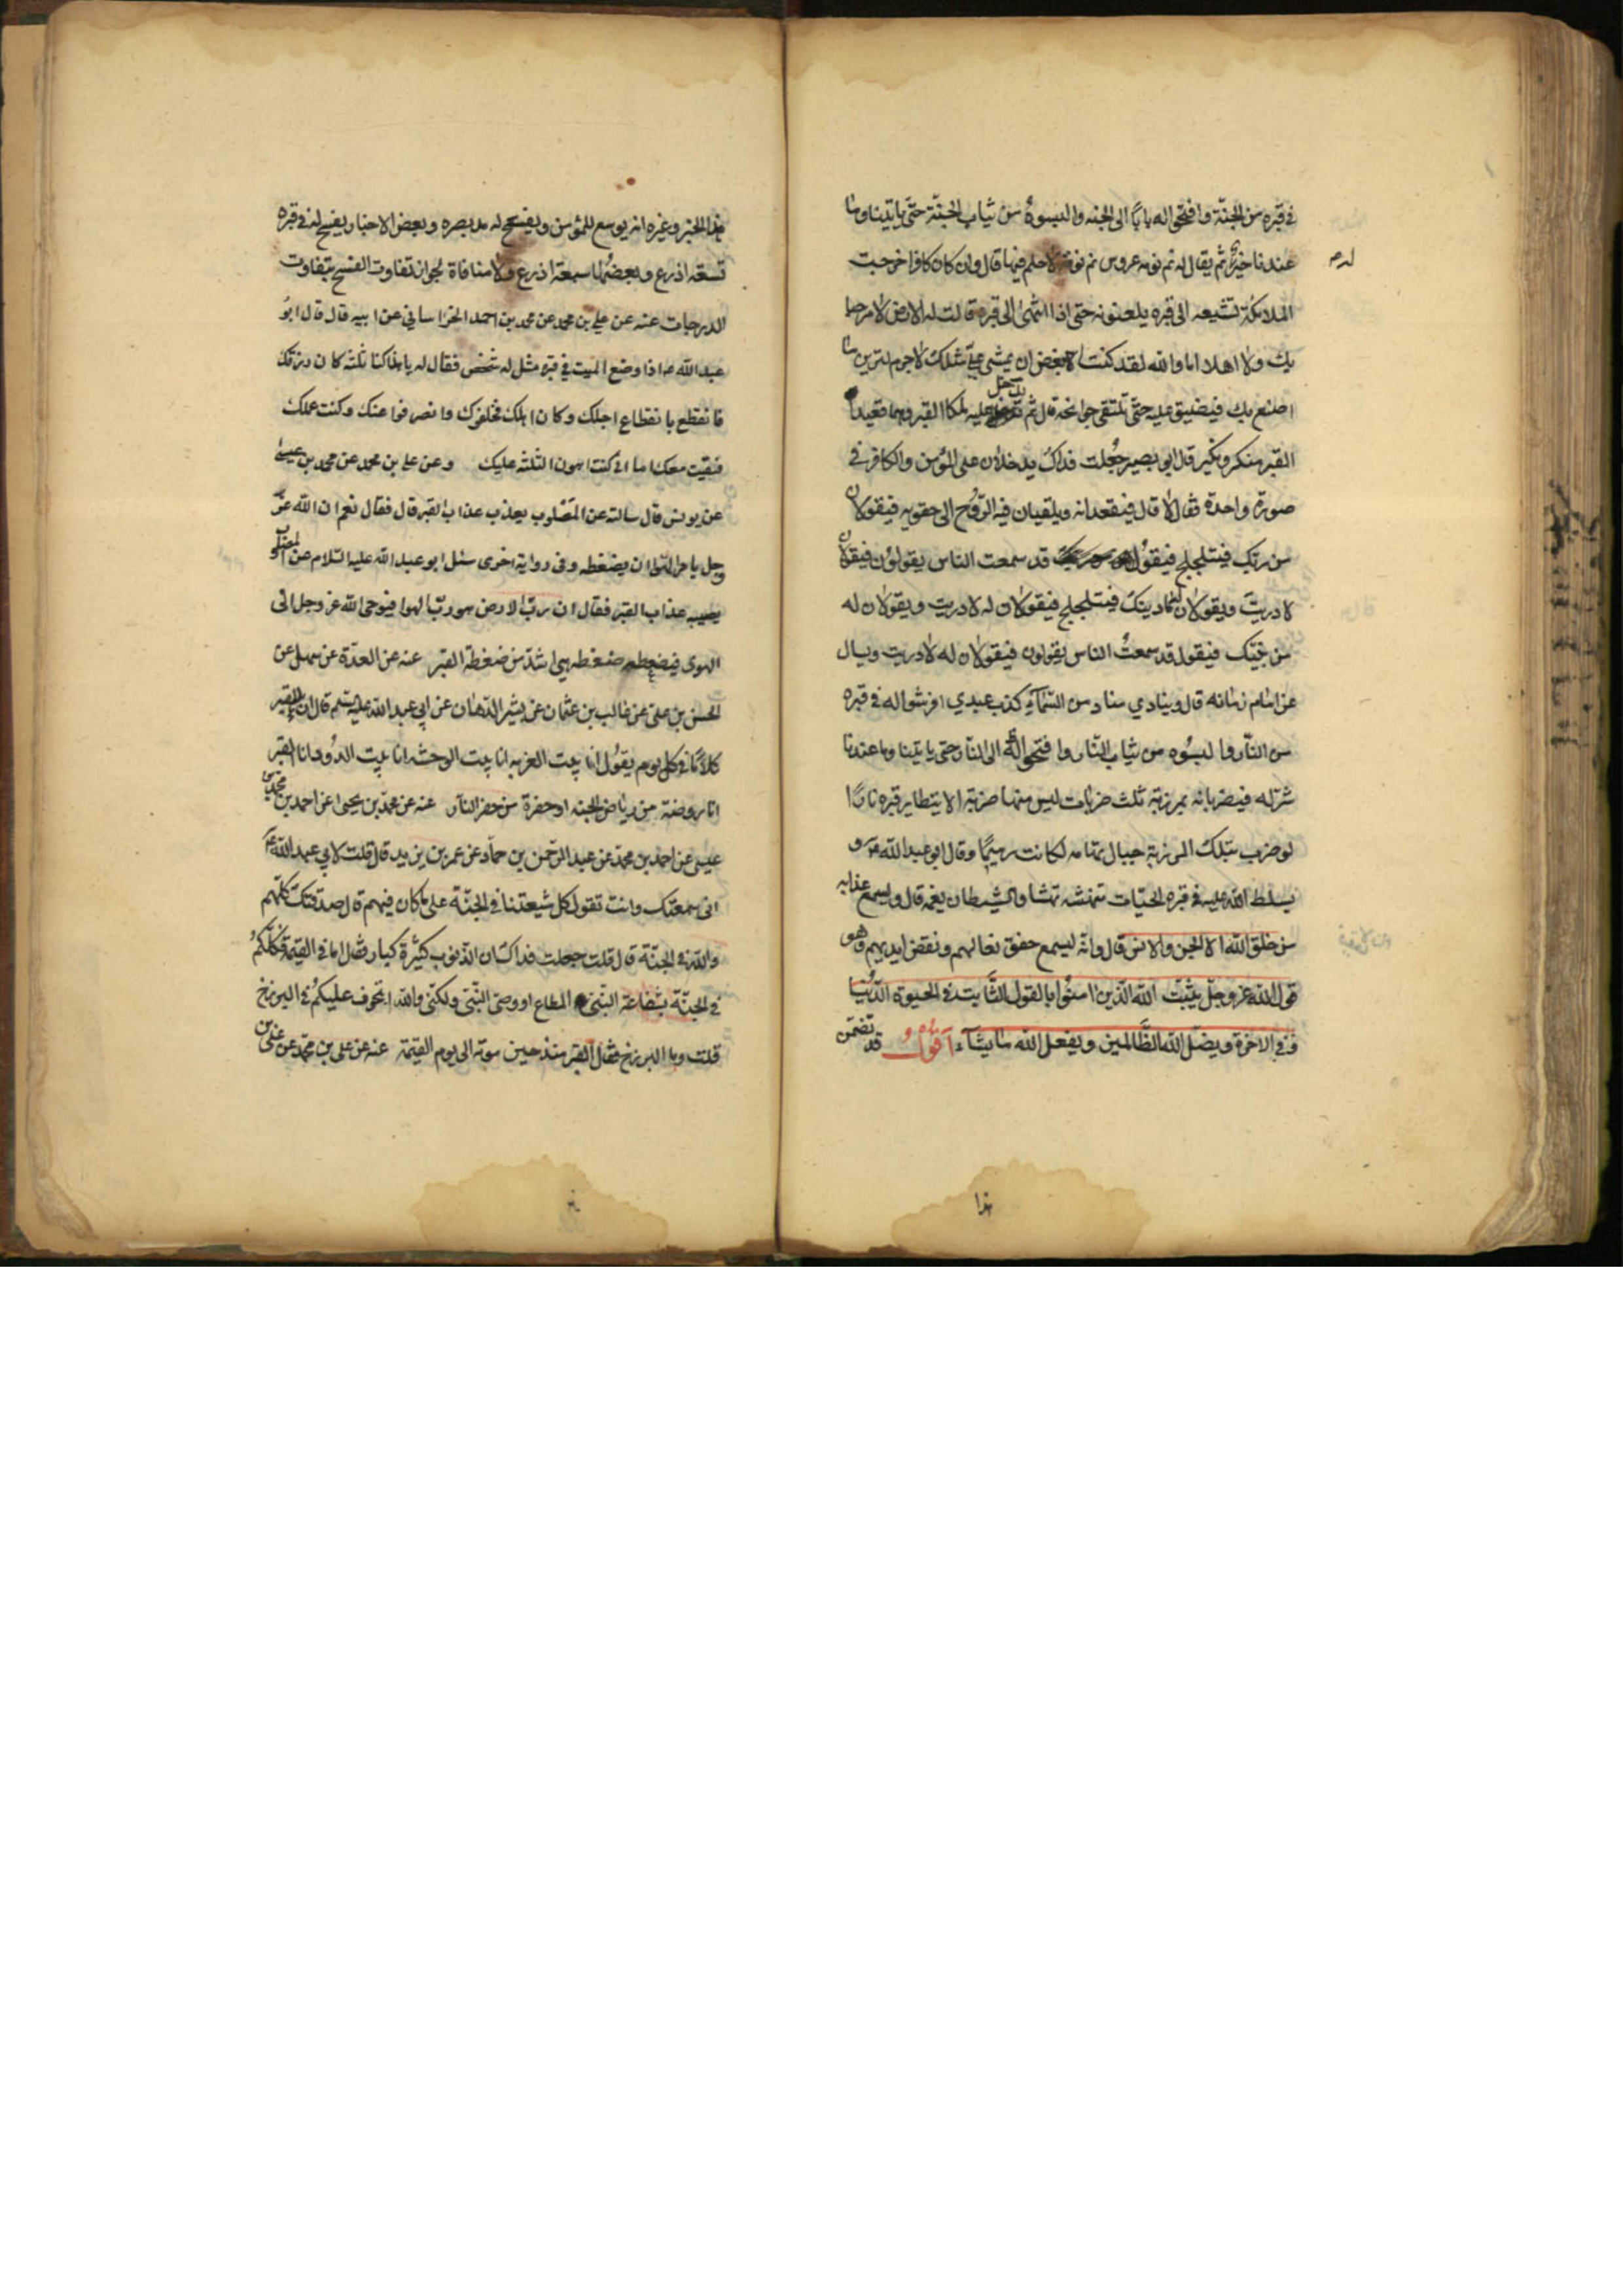 في قبره من الجنّة وافتحوا له بابًا الى الجنه والبسوهُ من ثياب الجنّة حتّى ياتينا وما
عندنا خير له ثم يقال له نم نومه عروس نم نومة لا حلم فيها قال وان كان كافرا خرجت
الملائكة تشيعه الى قبره يلعنونه حتى اذا انتهى الى قبره قالت له الارض لا مرحبا
بك ولا اهلا اما والله لقد كنت ابغض ان يمشي عليّ مثلك لا جرم لترين ما
اصنع بك فيضيق عليه حتّى تلتقي جوانحه قال ثم يدخل عليه ملكا القبر وهما قعيدا
القبر منكر ونكير قال ابو بصير جُعلت فداك يدخلان على المؤمن والكافر في
صورة واحدة فقال لا قال فيقعدانه ويلقيان فيه الرّوح الى حقويه فيقولان
من ربّك فيتلجلج فيقول قد سمعت الناس يقولون فيقولان
لا دريتَ ويقولان له ما دينك فيتلجلج فيقولان له لا دريت ويقولان له
من نبيّك فيقول قد سمعتُ الناس يقولون فيقولان له لا دريت ويسال
عن امام زمانه قال وينادي مناد من السّماء كذب عبدي افرشوا له في قبره
من النّار والبسُوه من ثياب النّار وافتحوا له الى النّار حتى ياتينا وما عندنا
شرّ له فيضربانه بمرزبة ثلث ضربات ليس منها ضربة الا يتطاير قبره نارًا
لو ضرب بتلك المرزبة جبال تهامه لكانت رميمًا وقال ابو عبد الله ع و
يسلط الله عليه في قبره الحيّات تنهشه نهشا والشيطان يغمه قال ويسمع عذابه
من خلق الله الا الجن والانس قال وانّه ليسمع خفق نعالهم ونقض ايديهم وهو
قول الله عز وجلّ يثبّت الله الّذين امنُوا بالقول الثّابت في الحيوة الدّنيا
وفي الاخرة ويضلّ الله الظّالمين ويفعل الله ما يشآء اقول قد تضمّن
هذا
هذا الخبر وغيره انه يوسع للمؤمن ويفسح له مد بصره وبعض الاخبار يفسح له في قبره
تسعه اذرع وبعضُها سبعة اذرع ولا منافاة لجواز تفاوت الفسح بتفاوت
الدرجات عنه عن علي بن محمد عن محمد بن احمد الخراساني عن ابيه قال قال ابوُ
عبد الله ع اذا وضع الميت في قبره مثل له شخص فقال له يا هذا كنا ثلثه كان رزقك
فانقطع بانقطاع اجلك وكان اهلك فخلفوك وانصرفوا عنك وكنت عملك
فبقيت معك اما اني كنت اهون الثلثه عليك وعن علي بن محمد عن محمد بن عيسى
عن يونس قال سالته عن المَصْلوب يعذب عذاب القبر قال فقال نعم ان الله عزّ
وجل يامر الهوا ان يضغطه وفي رواية اخرى سئل ابو عبد الله عليه السّلام عن المصلوب
يصيبه عذاب القبر فقال ان ربّ الارض هو ربّ الهوا فيوحى الله عز وجل الى
الهوى فيضغطه ضغطه هي اشدّ من ضغطة القبر عنه عن العدّة عن سهل عن
الحسن بن علي عن غالب بن عثمان عن بشير الدّهان عن ابي عبد الله عليه السّلم قال ان للقبر
كلامًا في كل يوم يقول انا بيت الغربه انا بيت الوحشه انا بيت الدُود انا القبر
انا روضة من رياض الجنه او حفرة من حفر النّار عنه عن محمّد بن يحيى عن احمد بن محمد بن
عيسى عن احمد بن محمّد عن عبد الرحمن بن حمّاد عن عمر بن يزيد قال قلت لابي عبد الله ع
اني سمعتك وانت تقول كل شيعتنا في الجنّة على ما كان فيهم قال صدقتك كلّهم
والله في الجنّة قال قلت جعلت فداك انّ الذّنوب كثيرة كبار فقال اما في القيمة فكلّكمُ
في الجنّة بشفاعة النّبيّ المطاع او وصيّ النّبيّ ولكنّي والله اتخوف عليكمُ في البرزخ
قلت وما البرزخ فقال القبر منذ حين موته الى يوم القيمة عنه عن علي بن محمّد عن علي بن